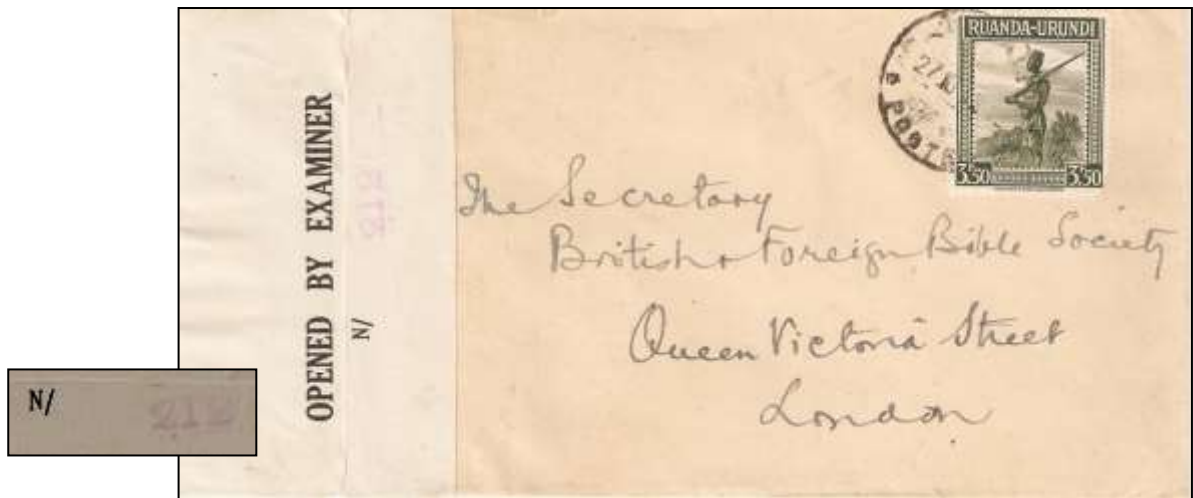 OPENED BY EXAMINER
N/
212
RUANDA-URUNDI
3,50 3,50
The Secretary
British & Foreign Bible Society
Queen Victoria Street
London
N/ 212